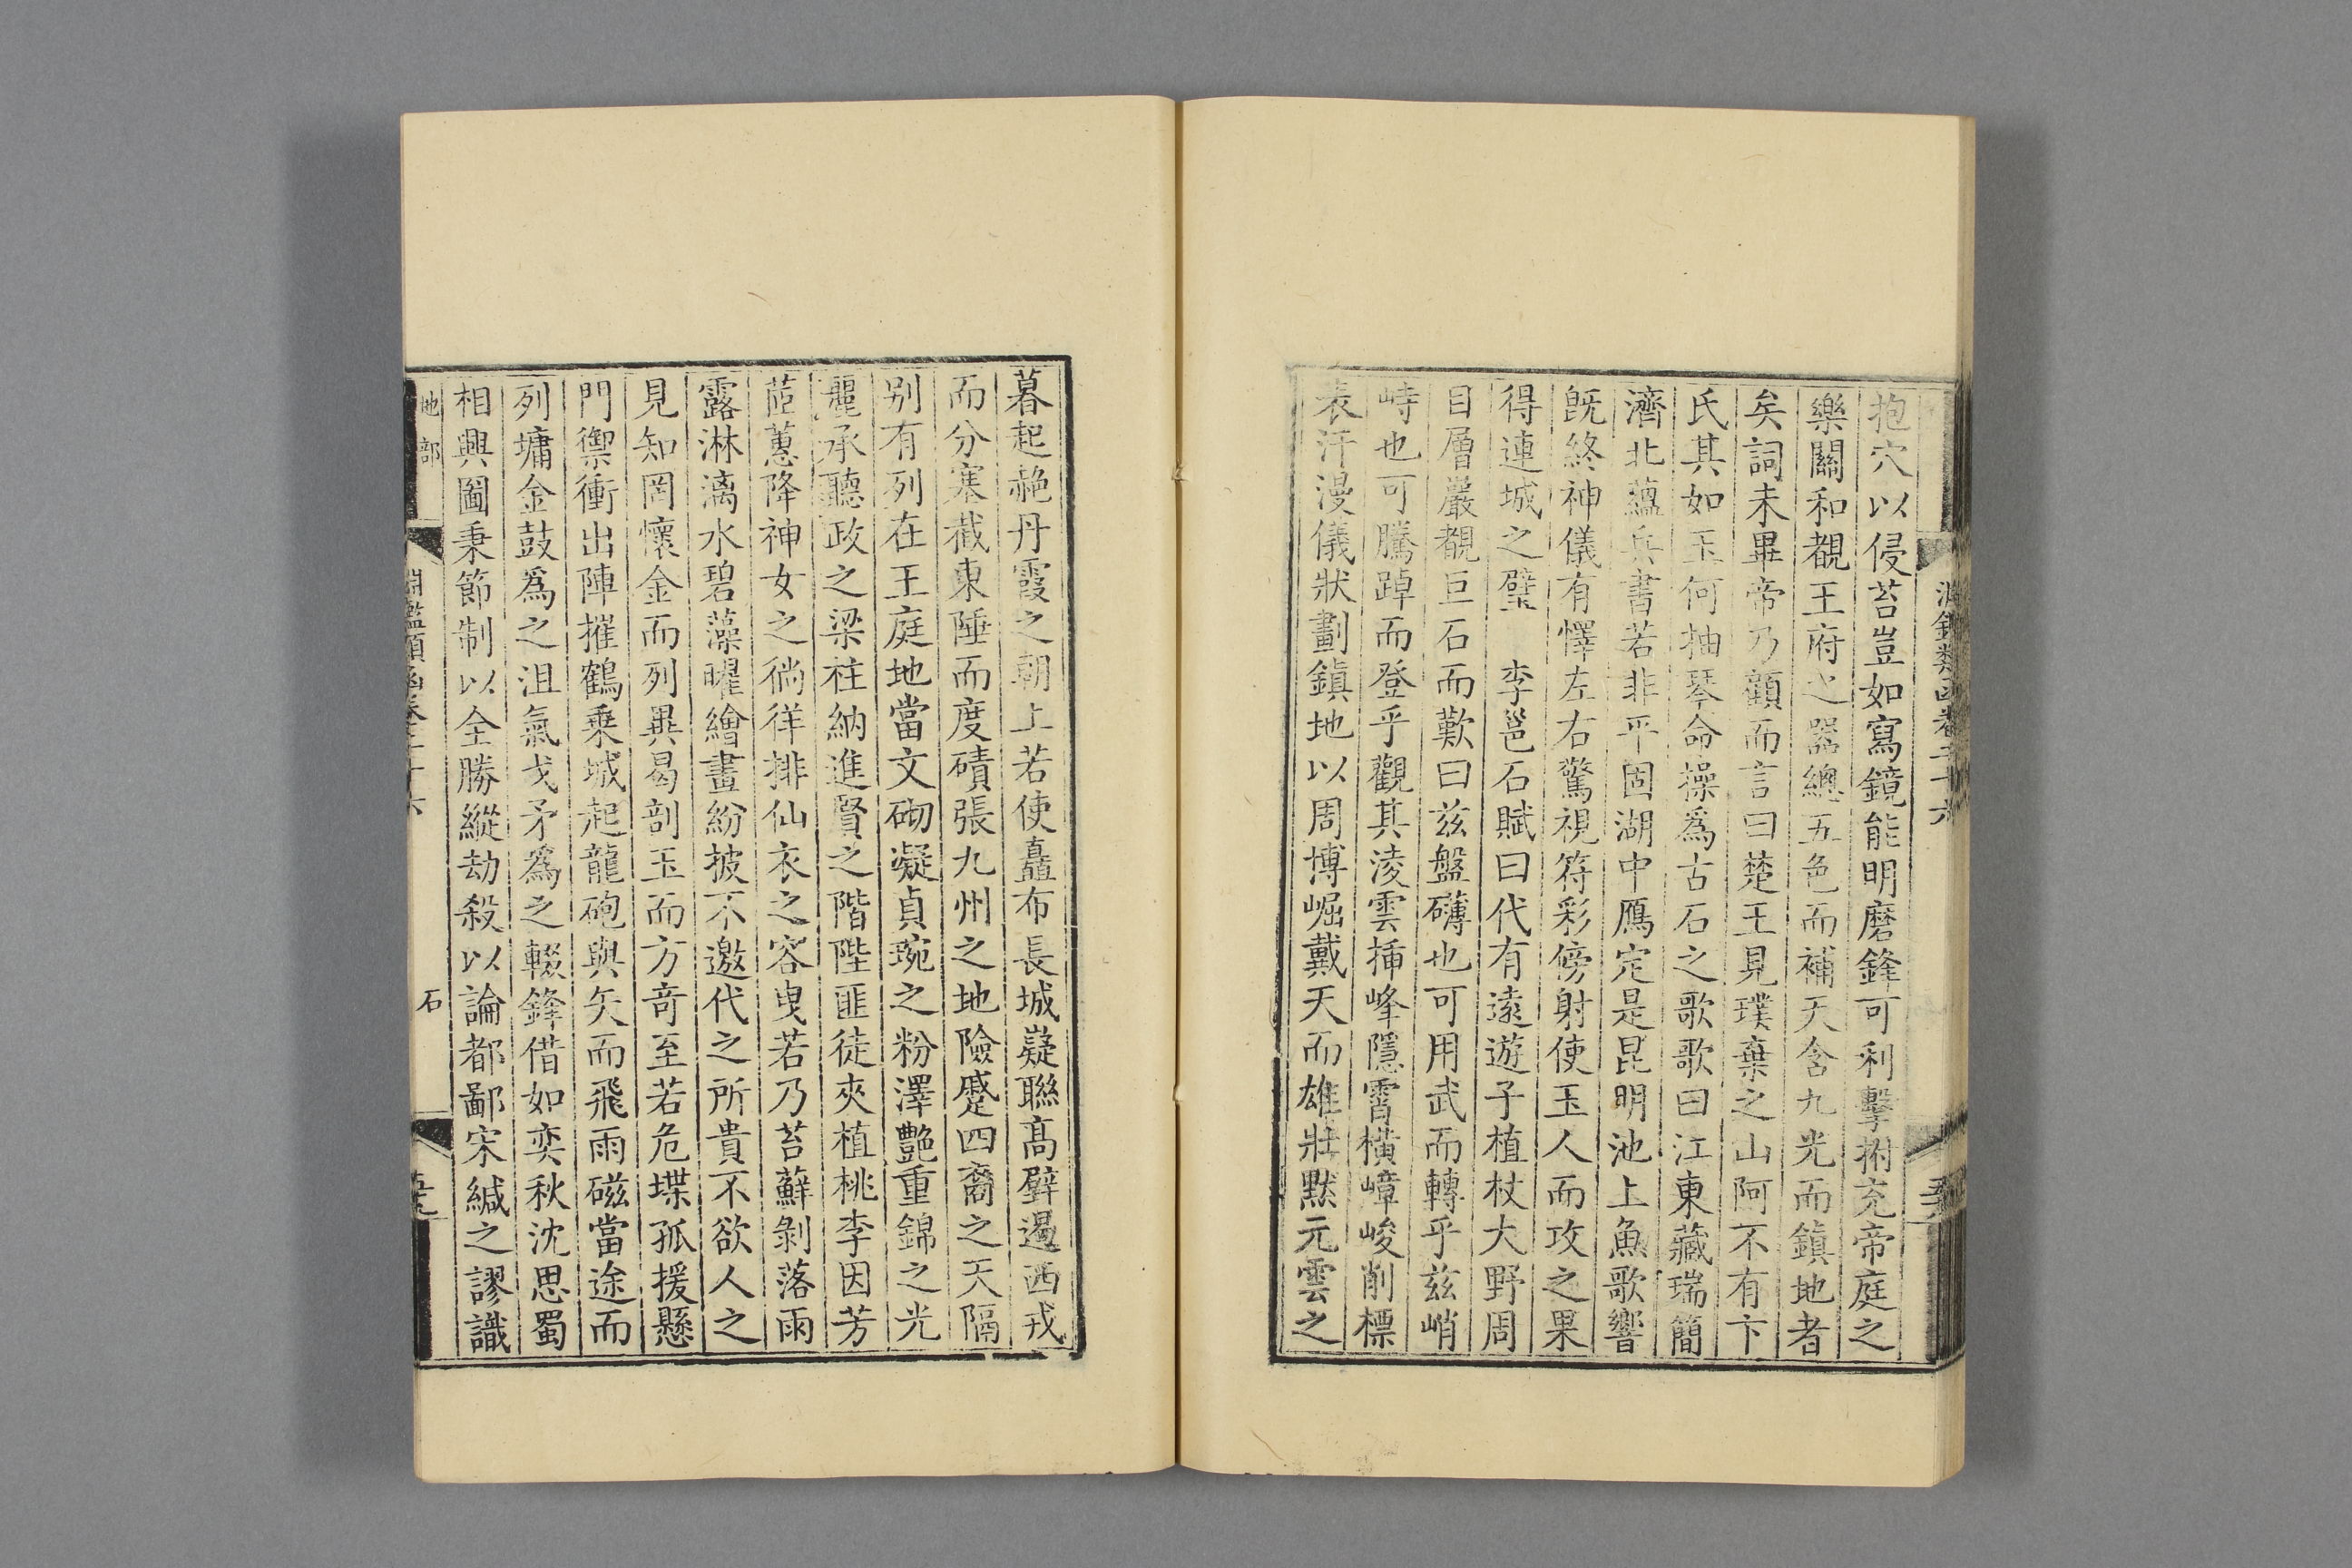 抱穴以侵苔豈如寫鏡能明磨鋒可利擊拊充帝庭之
樂關和覩王府之器總五色而補天含九光而鎮地者
矣詞未畢帝乃顧而言曰楚王見璞棄之山阿不有卞
氏其如玉何抽琴命操為古石之歌歌曰江東藏瑞簡
濟北蘊兵書若非平固湖中鴈定是昆明池上魚歌響
既終神儀有懌左右驚視符彩傍射使玉人而攻之果
得連城之璧 李邕石賦曰代有遠遊子植杖大野周
目層巖覩巨石而歎曰兹盤礴也可用武而轉乎兹峭
峙也可騰踔而登乎觀其淩雲揷峰隱霄橫嶂峻削標
表汗漫儀狀劃鎮地以周博崛戴天而雄壯黙元雲之
暮起赩丹霞之朝上若使矗布長城嶷聯髙壁遏西戎
而分塞截東陲而度磧張九州之地險蹙四裔之天隔
别有列在王庭地當文砌凝貞琬之粉澤艶重錦之光
麗承聽政之梁柱納進賢之階陛匪徒夾植桃李因芳
茝蕙降神女之徜徉排仙衣之容曳若乃苔蘚剝落雨
露淋漓水碧藻曜繪畫紛披不邀代之所貴不欲人之
見知罔懷金而列異曷剖玉而方竒至若危堞孤援懸
門禦衝出陣摧鶴乗城起龍砲與矢而飛雨磁當途而
列墉金鼓為之沮氣戈矛為之輟鋒借如奕秋沈思蜀
相興圖秉節制以全勝縱劫殺以論都鄙宋緘之謬識
地部
淵鑑類函卷二十六
石